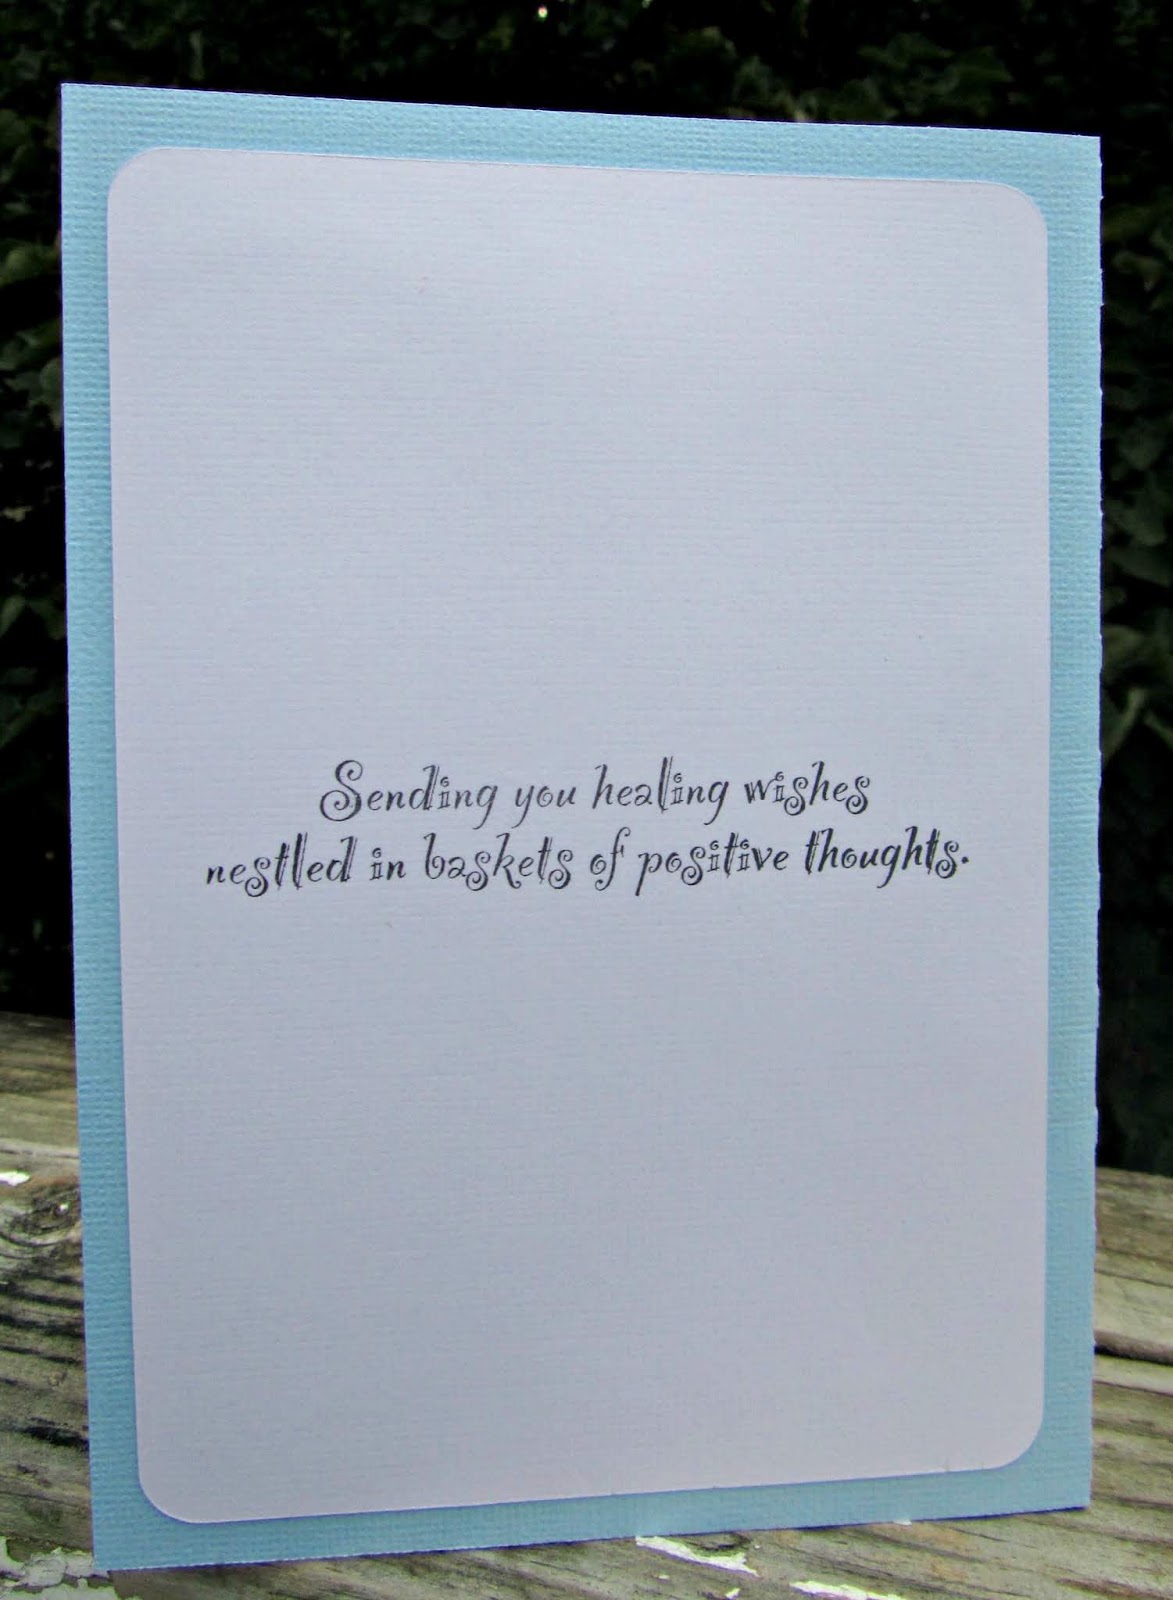 Sending you healing wishes
nestled in baskets of positive thoughts.